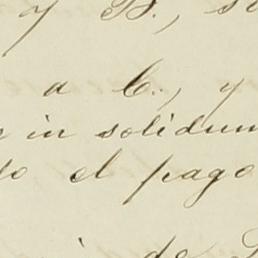 y B.,
a C., y
in solidum
el pago
de